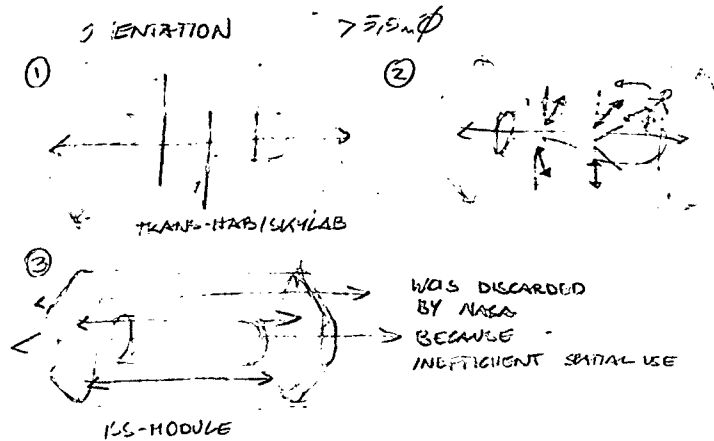 ENTATION
> 5,5m Ø
①
②
TRANS-HAB/SKYLAB
③
WAS DISCARDED
BY NASA
BECAUSE
INEFFICIENT SPATIAL USE
ISS-MODULE